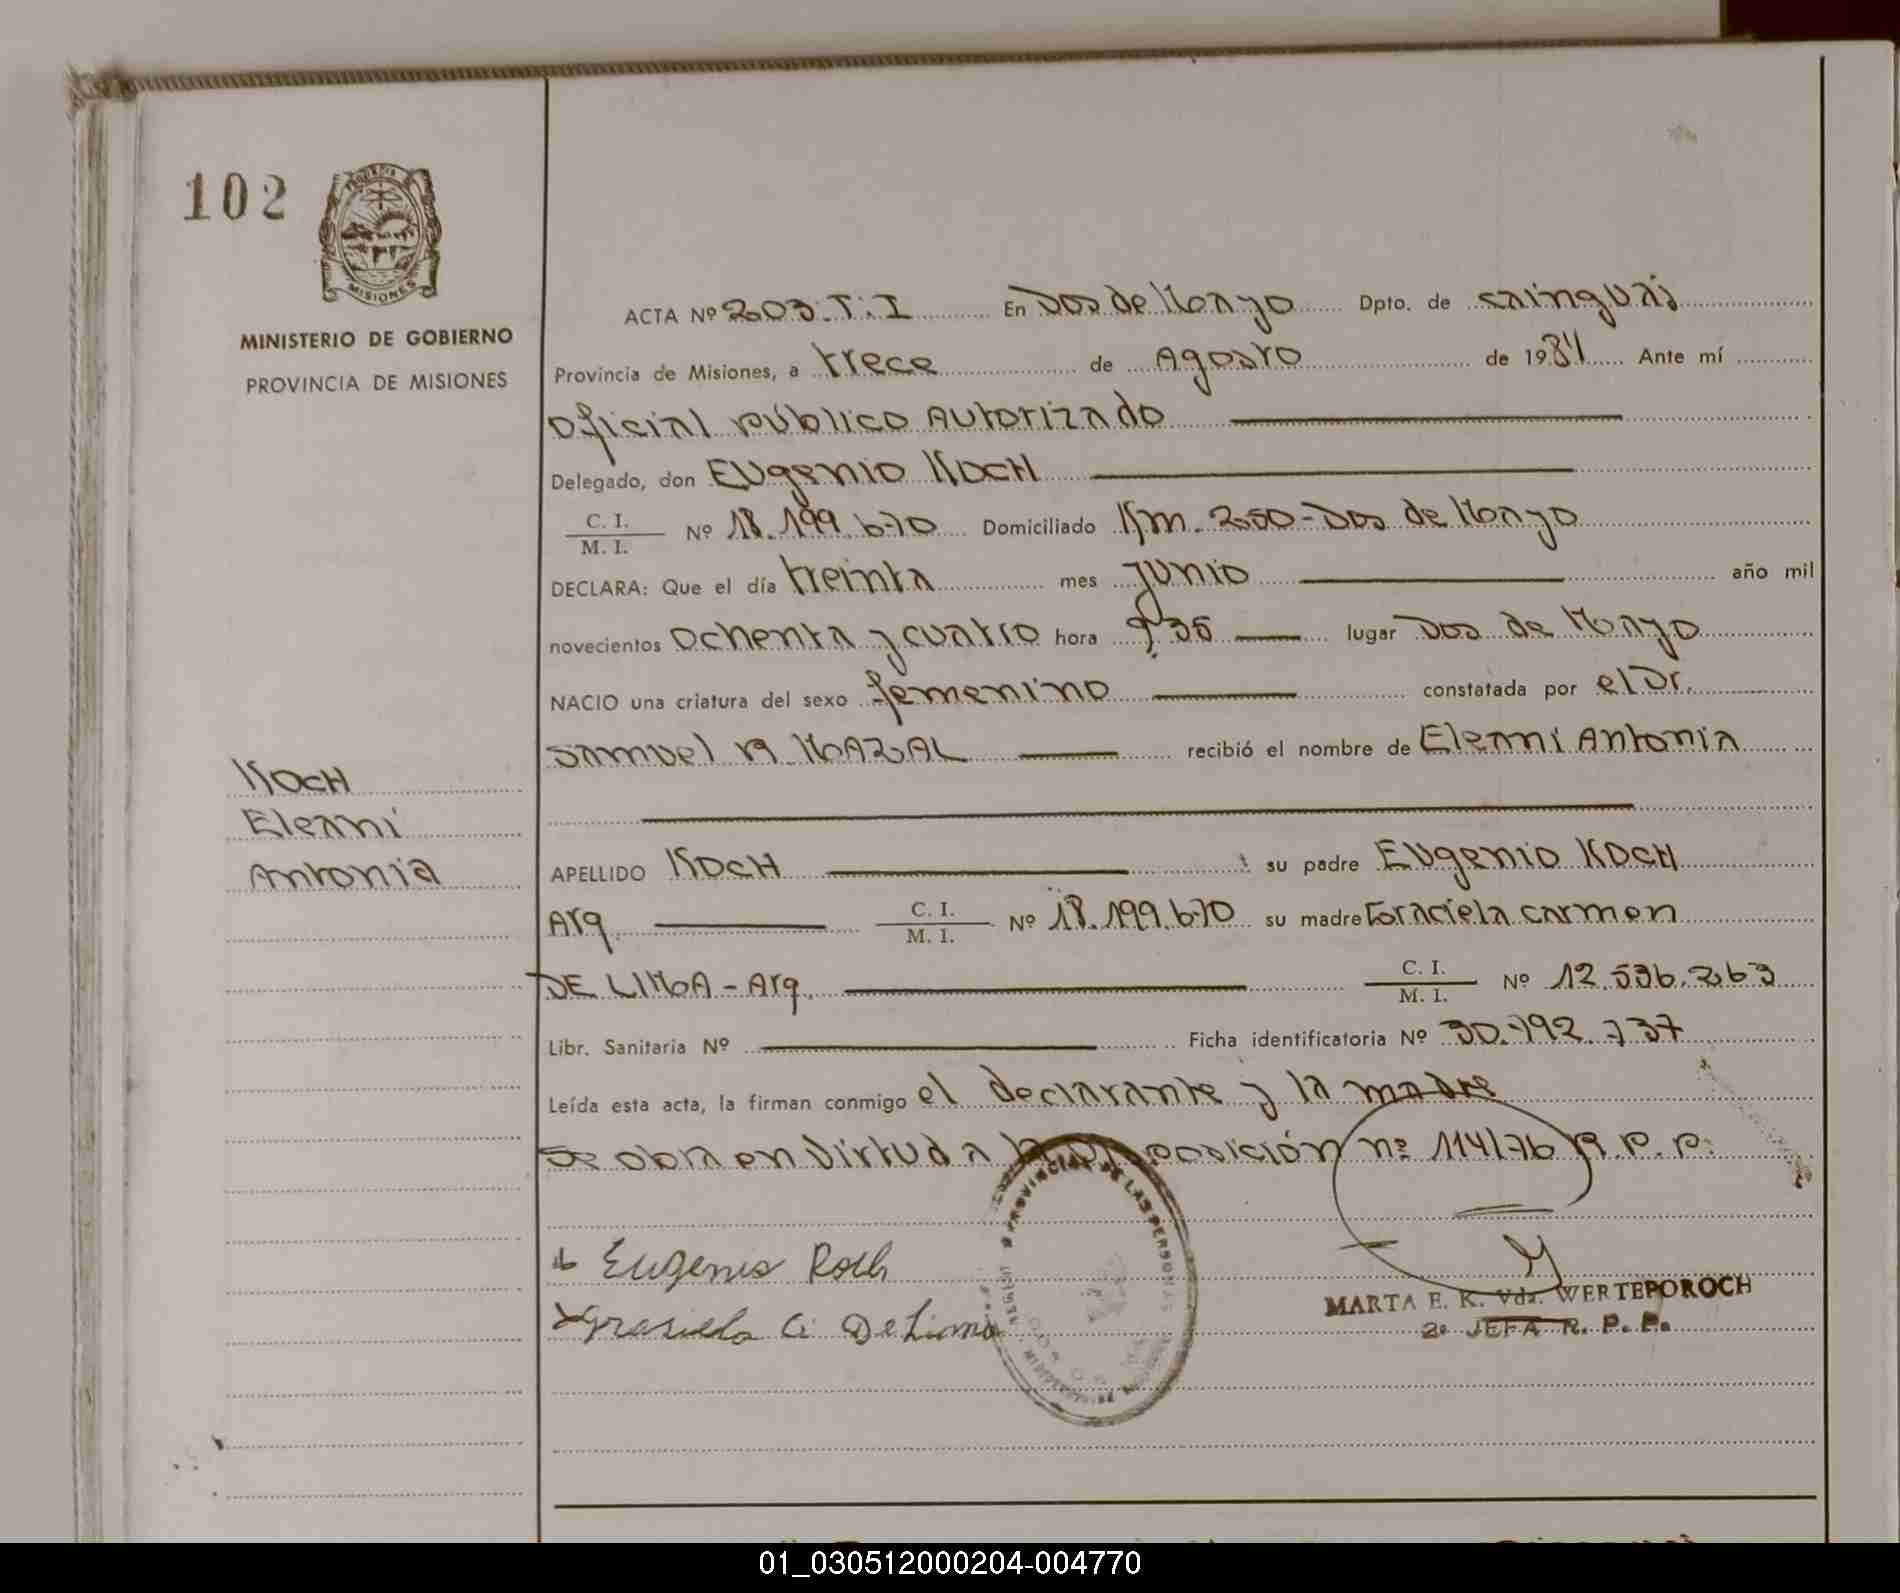 102
MISIONES
MINISTERIO DE GOBIERNO
PROVINCIA DE MISIONES
ACTA Nº 203.T.I En Dos de Mayo Dpto. de cainguás
Provincia de Misiones, a trece de Agosto de 1984 Ante mí
Oficial Público Autorizado
Delegado, don Eugenio KOCH
C. I.
M. I. Nº 18.199.670 Domiciliado Km. 250-Dos de Mayo
DECLARA: Que el día treinta mes junio año mil
novecientos ochenta y cuatro hora 9.35 lugar Dos de Mayo
NACIO una criatura del sexo femenino constatada por el Dr.
Samuel R MAZAL recibió el nombre de Eleani Antonia
KOCH
Eleani
Antonia
APELLIDO KOCH su padre Eugenio KOCH
Arg. C. I.
M. I. Nº 18.199.670 su madre Graciela carmen
DE LIMA - Arg. C. I.
M. I. Nº 12.536.263
Libr. Sanitaria Nº Ficha identificatoria Nº 30.792.737
Leída esta acta, la firman conmigo el declarante y la madre
Se obra en virtud a la Disposición nº 114/76 R.P.P.
PROVINCIAL DE LAS PERSONAS
Eugenio Koch
Grasiela C. De Lima
MARTA E. K. Vda. WERTEPOROCH
2º JEFA R. P. P.
01_030512000204-004770